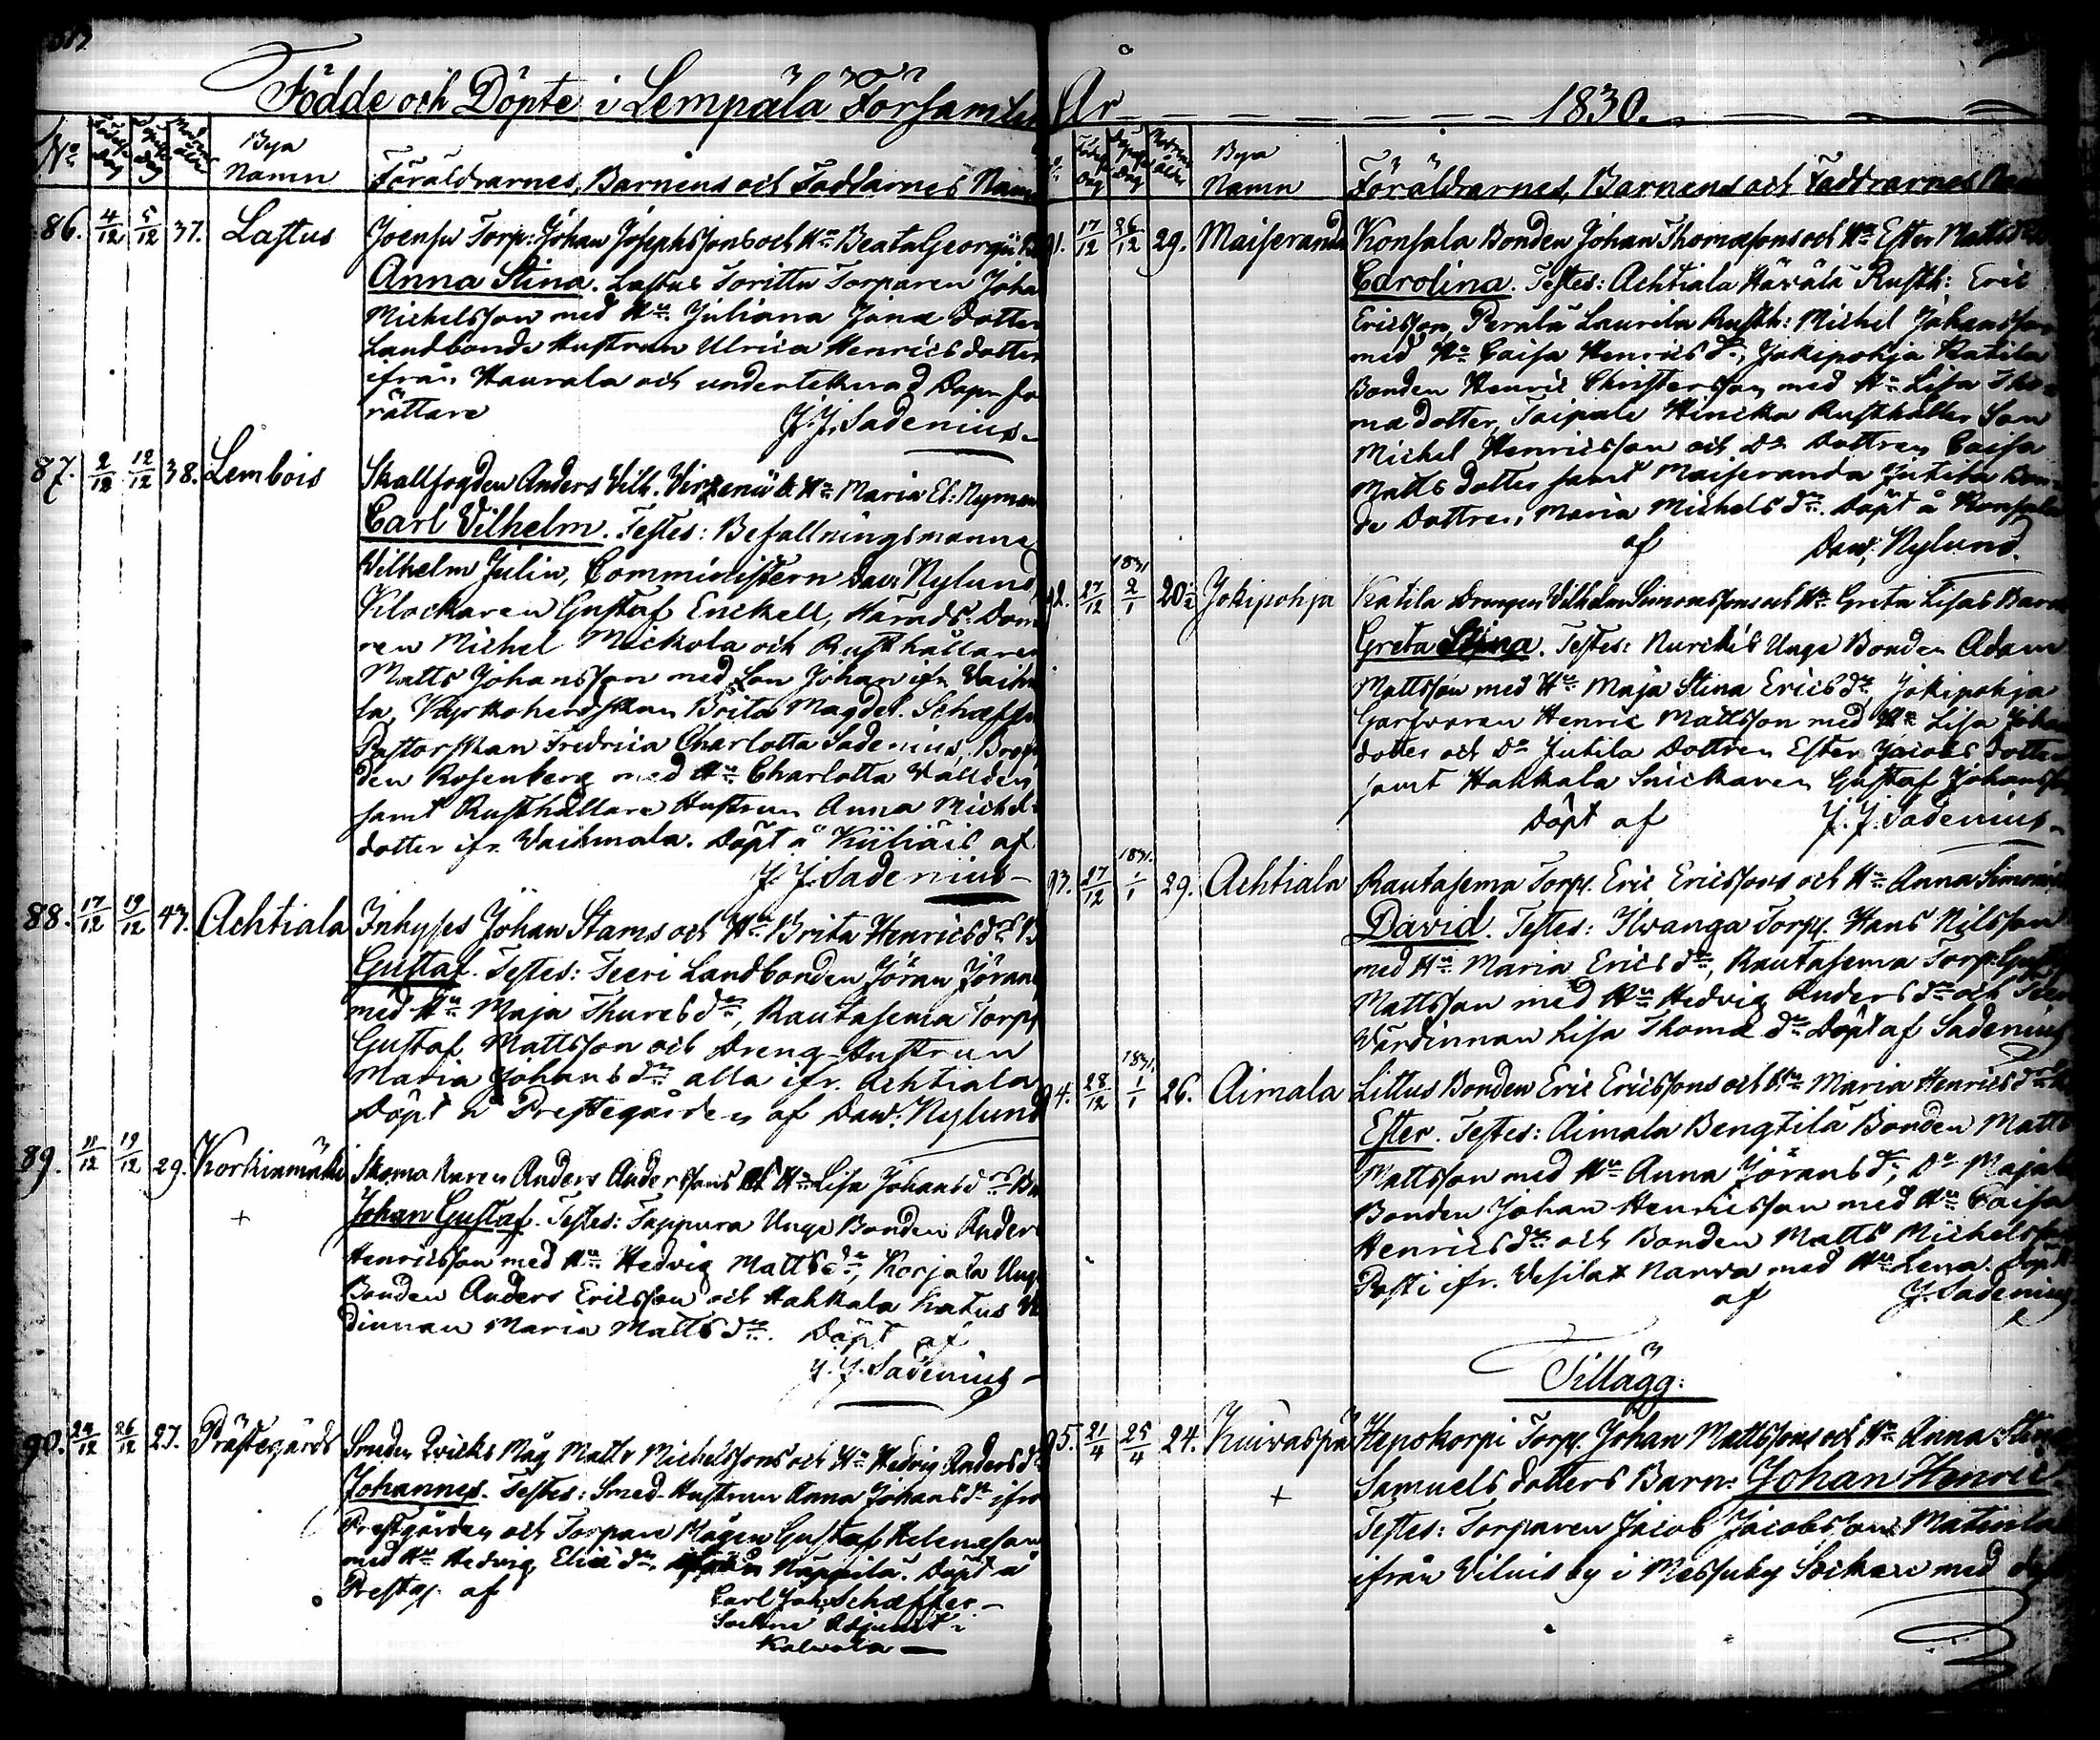 Födde och Döpte i Lempälä Församl
No Födelse dag Döpelse dag Modrens ålder Bya Namn Föräldrarnes, Barnens och Faddarnes Namn
86. 4/12 5/12 37. Lastus Joensu Torp: Johan Josephssons och Hu Beata Georgii
Anna Stina. Lastus Torittu Torparen Joha
Michelsson med Hu Juliana Jonæ dotter
Landbonde Hustrun Ulrica Henricsdotter
ifrån Haurala och undertecknad Dopn fö
rättare J. J. Sadenius
87. 2/12 12/12 38. Lembois Skallfogden Anders Vilh. Virzenii & Hu Maria El: Nyman
Carl Vilhelm. Testes: Befallningsmanne
Wilhelm Julin, Comministern Dav: Nylund
Klockaren Gustaf Enckell, Härads-Dom
ren Michel Mickola och Rusthållaren
Matts Johansson med Son Johan ifr. Vaihma
la, Kyrkoherdskan Brita Magdel. Schæffer
Pastorskan Fredrica Charlotta Sadenius, Brof
den Rosenberg med Hu Charlotta Vallden
samt Rusthållare Hustrun Anna Michels
dotter ifr. Vaihmala. Döpt å Kuljais af
J. J. Sadenius
88. 17/12 19/12 43. Achtiala Inhyses Johan Stams och Hu Brita Henricsdrs B
Gustaf. Testes: Teeri Landbonden Jöran Jöran
med Hu Maja Thuresdr, Rautasema Torp
Gustaf Mattsson och Dreng-Hustrun
Maria Johansdr alla ifr. Achtiala
Döpt å Prestegården af Dav: Nylund
89. 11/12 19/12 29. Korkinmäki Skomakaren Anders Anderssons och Hu Lisa Johansdrs Ba
+ Johan Gustaf. Testes: Tappura Unge Bonden Ander
Henricsson med Hu Hedvig Mattsdr, Korjala Ung
Bonden Anders Ericsson och Hakkala Katus W
dinnan Maria Mattsdr. Döpt af
J. J. Sadenius
90. 24/12 26/12 27. Prästegårds Smeden Qvicks Måg Matts Michelssons och Hu Hedvig Andersdr
Johannes. Testes: Smed-Hustrun Anna Johansdr ifrå
Prestgården och Torpare Mågen Gustaf Helenesson
med Hu Hedvig Eliædr Nappila. Döpt å
Prestg. af Carl Joh: Schæffer
Sockne Adjunct i
Kalvola
År 1830.
No Födelse dag Döpelse dag Modrens ålder Bya Namn Föräldrarnes, Barnens och Faddrarnes Na
91. 17/12 26/12 29. Maiseranda Konsala Bonden Johan Thomæsons och Hu Ester Mattsd
Carolina. Testes: Achtiala Hävälä Rusth: Eric
Ericsson, Perälä Laurila Rusth: Michel Johansson
med Hu Caisa Henricsdr, Jokipohja Katila
Bonden Henric Christersson med Hu Lisa Tho-
mæ dotter, Taipale Hincka Rusthåller Son
Michel Henricsson och Do Dottren Caisa
Matts dotter samt Maiseranda Jutila Bon-
de Dottren Maria Michelsdr. Döpt å Konsala
af Dav: Nylund.
92. 27/12 1831 2/1 20 1/2 Jokipohja Katila Drengen Vilhelm Simonssons och Hu Greta Lisas Barn
Greta Stina. Testes: Nurckis Unge Bonden Adam
Mattsson med Hu Maja Stina Ericsdr, Jokipohja
Garfvaren Henric Mattsson med Hu Lisa Johan
dotter och Do Jutila Dottren Ester Jacobs dotter
samt Hakkala Snickaren Gustaf Johansson
Döpt af J. J. Sadenius
93. 27/12 1831. 1/1 29. Achtiala Rautasema Torp. Eric Ericssons och Hu Anna Simons
David. Testes: Ilvanga Torp. Hans Nilsson
med Hu Maria Ericsdr, Rautasema Torp: Gust
Mattsson med Hu Hedvig Andersdr och Teeri
Värdinnan Lisa Thomædr Döpt af Sadenius
94. 28/12 1831. 1/1 26. Aimala Littus Bonden Eric Ericssons och Hu Maria Henricsdrs
Ester. Testes: Aimala Bengtilä Bonden Matts
Mattsson med Hu Anna Jöransdr, Do Majala
Bonden Johan Henricsson med Hu Caisa
Henricsdr och Bonden Matts Michelsson
Posti ifr. Vesilax Narva med Hu Lena. Döpt
af J. Sadenius
Tillägg:
95. 21/4 25/4 24. Kuivaspä Hepokorpi Torp. Johan Mattssons och Hu Anna Stina
+ Samuels dotters Barn: Johan Henric
Testes: Torparen Jacob Jacobsson Matinla
ifrån Viluis by i Messuby Socken med